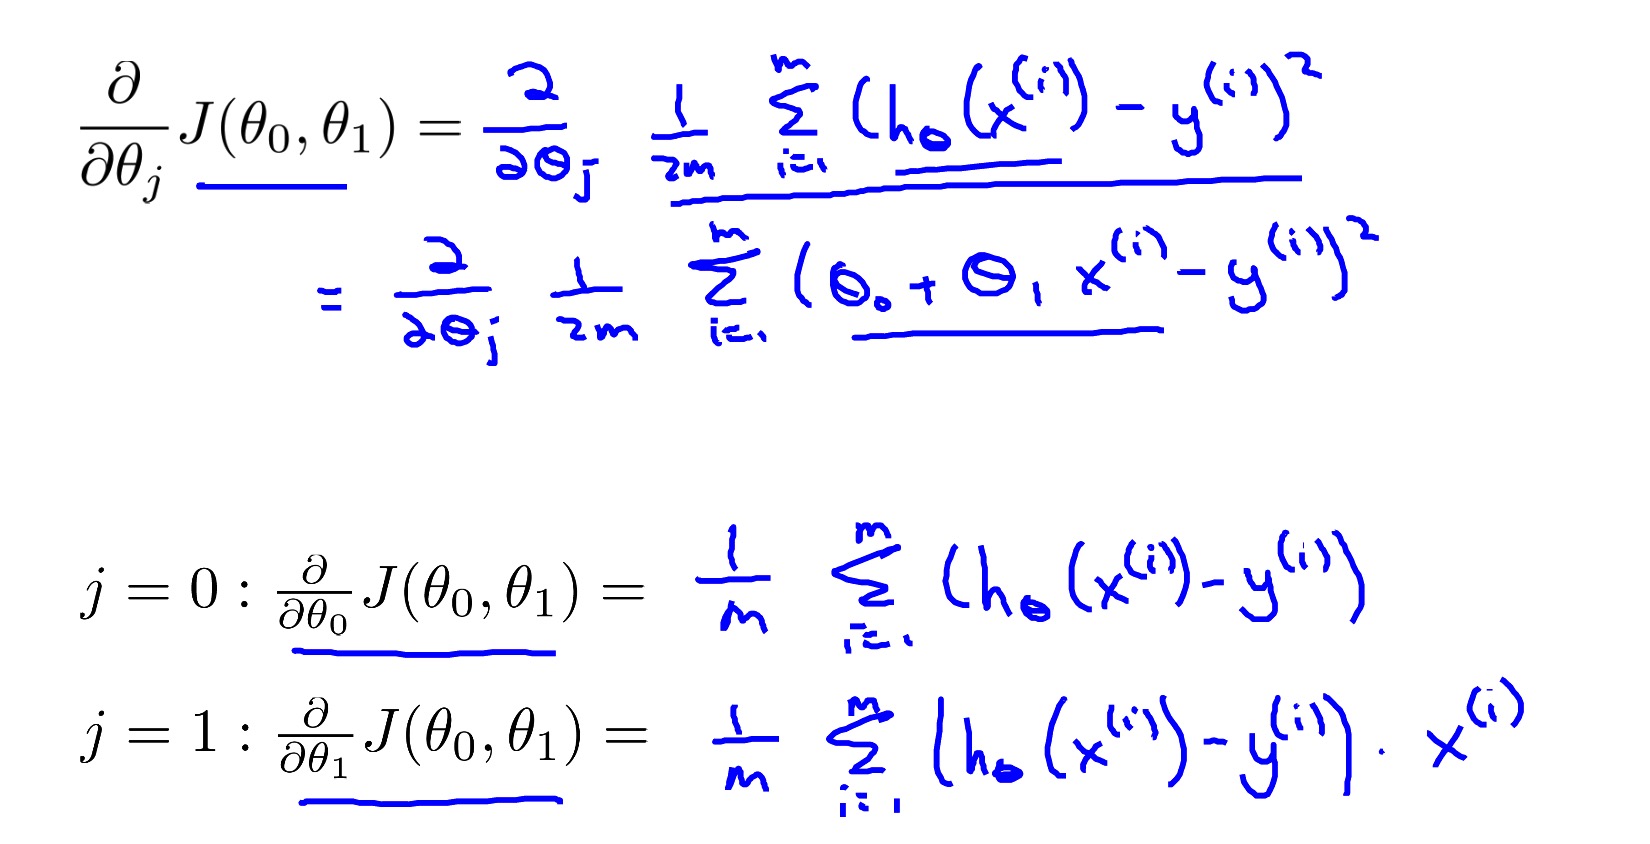 ∂/∂θ_j J(θ₀, θ₁) = ∂/∂θ_j 1/2m ∑_{i=1}^{m} (h_θ(x^{(i)}) - y^{(i)})²
= ∂/∂θ_j 1/2m ∑_{i=1}^{m} (θ₀ + θ₁ x^{(i)} - y^{(i)})²
j = 0 : ∂/∂θ₀ J(θ₀, θ₁) = 1/m ∑_{i=1}^{m} (h_θ(x^{(i)}) - y^{(i)})
j = 1 : ∂/∂θ₁ J(θ₀, θ₁) = 1/m ∑_{i=1}^{m} (h_θ(x^{(i)}) - y^{(i)}) · x^{(i)}